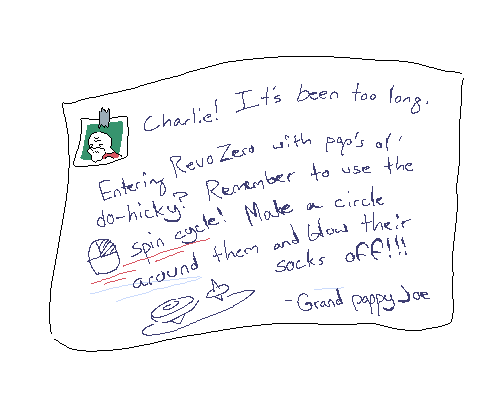 Charlie! It's been too long.
Entering RevoZero with pap's ol'
do-hicky? Remember to use the
spin cycle! Make a circle
around them and blow their
socks off!!!
-Grand pappy Joe